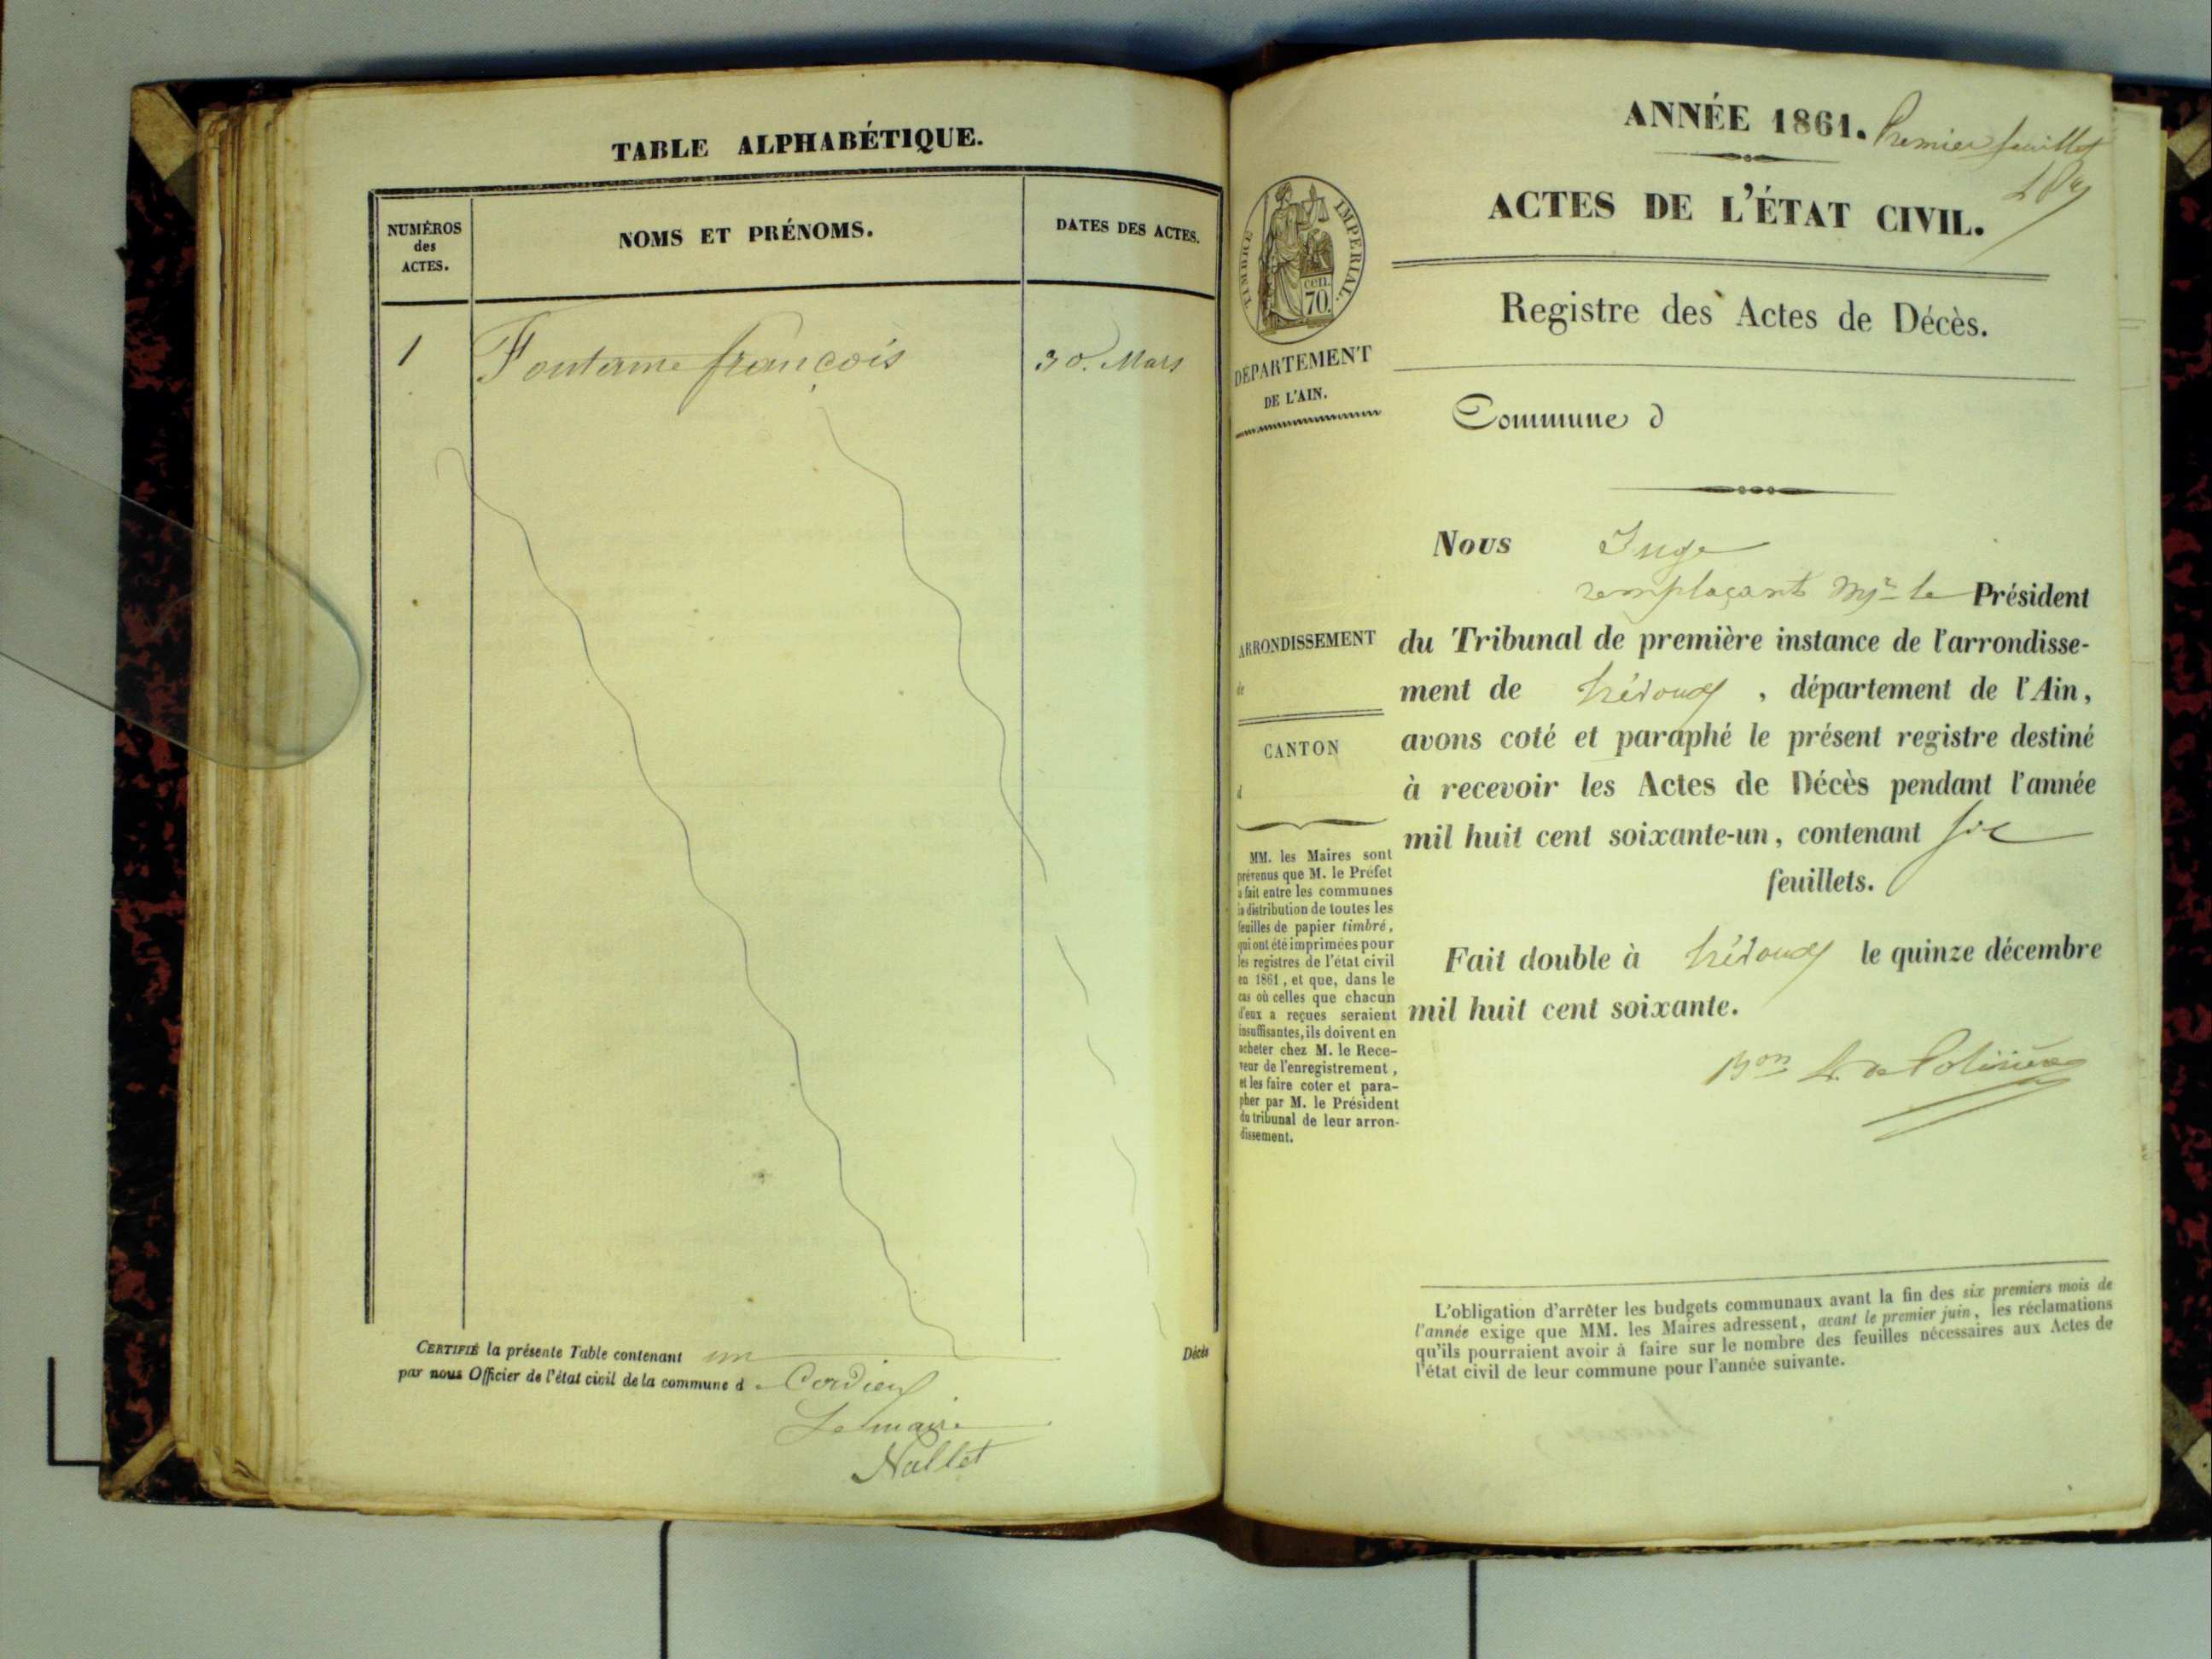 TABLE ALPHABÉTIQUE.
NUMÉROS
des
ACTES.
NOMS ET PRÉNOMS.
DATES DES ACTES.
1 Fontaine françois 30. Mars
CERTIFIÉ la présente Table contenant un Décès
par nous Officier de l'état civil de la commune d Cordieux
Le maire
Nallet
ANNÉE 1861. Premier feuillet
ACTES DE L'ÉTAT CIVIL.
TIMBRE IMPÉRIAL.
cen.
70.
Registre des Actes de Décès.
DÉPARTEMENT
DE L'AIN.
Commune d
Nous Juge
remplaçant Mr le Président
du Tribunal de première instance de l'arrondisse-
ment de trévoux, département de l'Ain,
avons coté et paraphé le présent registre destiné
à recevoir les Actes de Décès pendant l'année
mil huit cent soixante-un, contenant six
feuillets.
Fait double à trévoux le quinze décembre
mil huit cent soixante.
Bon
ARRONDISSEMENT
de
CANTON
d
MM. les Maires sont
prévenus que M. le Préfet
a fait entre les communes
la distribution de toutes les
feuilles de papier timbré,
qui ont été imprimées pour
les registres de l'état civil
en 1861, et que, dans le
cas où celles que chacun
d'eux a reçues seraient
insuffisantes, ils doivent en
acheter chez M. le Rece-
veur de l'enregistrement,
et les faire coter et para-
pher par M. le Président
du tribunal de leur arron-
dissement.
L'obligation d'arrêter les budgets communaux avant la fin des six premiers mois de
l'année exige que MM. les Maires adressent, avant le premier juin, les réclamations
qu'ils pourraient avoir à faire sur le nombre des feuilles nécessaires aux Actes de
l'état civil de leur commune pour l'année suivante.